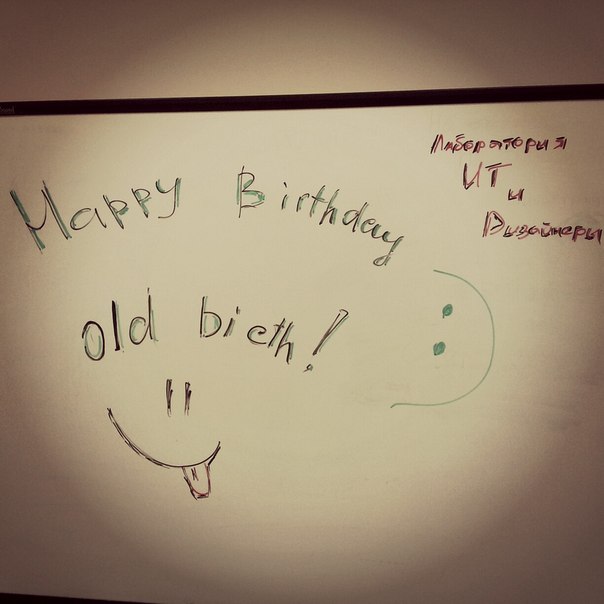 Happy Birthday
old bieth!
Лаборатория
ИТ
и
Дизайнеры